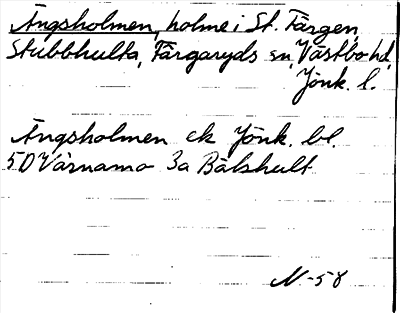 Ängsholmen, holme i St. Färgen,
Stubbhulta, Färgaryds sn, Västbo hd,
Jönk. l.
Ängsholmen ek Jönk. bl.
5D Värnamo 3a Bälshult
N.-58